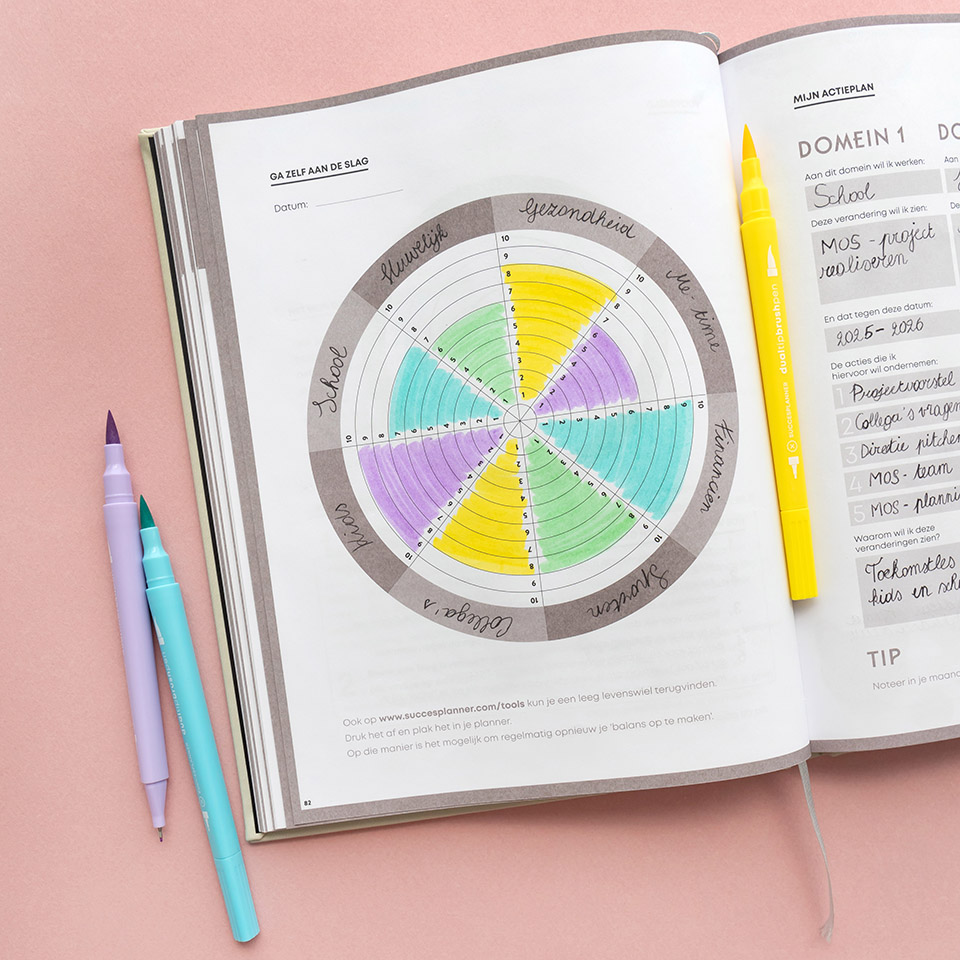 GA ZELF AAN DE SLAG
Datum:
Gezondheid
Me-time
Financiën
Sporten
Collega's
kids
School
Huwelijk
10
9
8
7
6
5
4
3
2
1
Ook op www.succesplanner.com/tools kun je een leeg levenswiel terugvinden.
Druk het af en plak het in je planner.
Op die manier is het mogelijk om regelmatig opnieuw je 'balans op te maken'.
82
SUCCESPLANNER dualtipbrushpen
MIJN ACTIEPLAN
DOMEIN 1
DO
Aan dit domein wil ik werken:
School
Deze verandering wil ik zien:
De
MOS - project
realiseren
En dat tegen deze datum:
2025 - 2026
De acties die ik
hiervoor wil ondernemen:
1 Projectvoorstel
2 Collega's vragen
3 Directie pitchen
4 MOS - team
5 MOS - planni
Waarom wil ik deze
veranderingen zien?
Toekomstles
kids en sch
TIP
Noteer in je maand